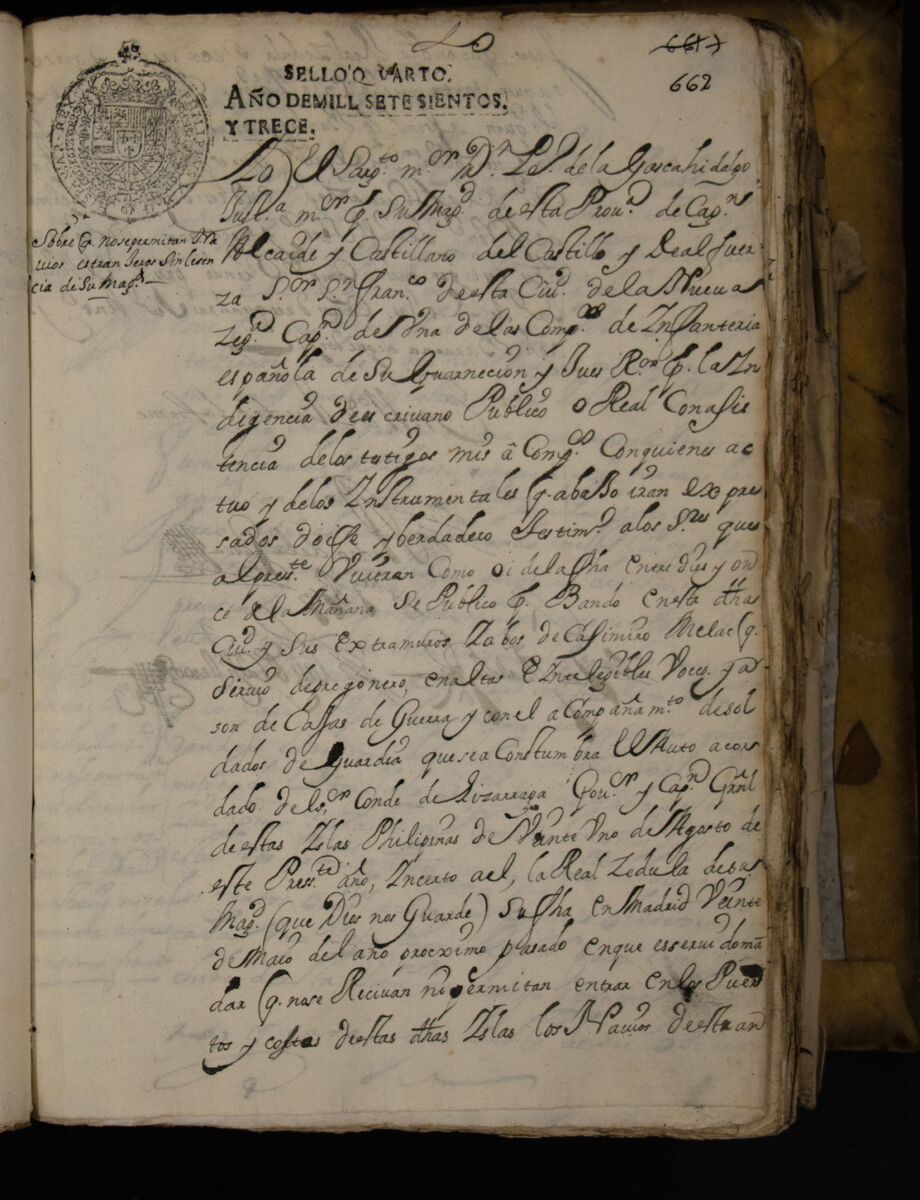 661
662
SELLO QVARTO.
AÑO DE MILL SETE SIENTOS,
Y TRECE.
Yo El Sarg.to m.or D.n de la Gorcahidalgo
Just.a m.or p. Su Mag.d de esta Prou.a de Cag.n
Alcaide y Castillano del Castillo y Real fuer
za S.or S.n Fran.co de esta Ciu.d de la Nueua S
Zeg.a Cap.n de Vna de las Comp.as de Infanteria
española de Su Guarnecion y Jues R.or p. la In
digencia de escrivano Publico o Real Con asis
tencia de los testigos mis a Comp.s Con quienes ac
tuo y de los Instrumentales q. abaSso iran expre
sados doi fe y berdadero testim.o a los S.res que
al pres.te Vuieran Como oi de la fha entre dies y on
ce de la Mañana Se Publico p. Bando en esta dha
Ciu.d y Sus extramuros Za bos de Casimiro Melac q.
Siruio de pregonero, en altas E Intelegibles Voces y a
son de Caxas de Guerra y con el a Compañam.to de sol
dados de Guardia que se a Constumbra El Auto acor
dado del s.or Conde de Lizarraga Gou.or y Cap.n Gral
de estas Islas Philipinas de Veinte Vno de Agosto de
este Pres.te año, Incerto a el, la Real Zedula de Su
Mag.d (que Dios nos Guarde) Su fha en Madrid Veinte
de Maio del año procximo pasado en que es seruido man
dar q. no se Recivan ni permitan entrar en los Puer
tos y costas de estas dhas Islas los Nauios de estran
Sobre q. no se permitan Na
uios estranJeros Sin lesen
cia de Su Mag.d